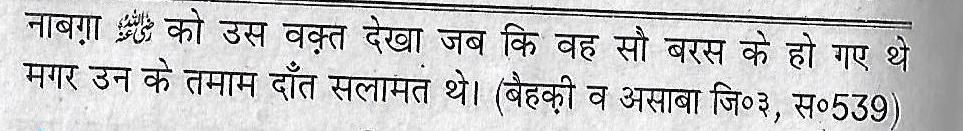 नाबग़ा رضی اللہ عنہ को उस वक़्त देखा जब कि वह सौ बरस के हो गए थे
मगर उन के तमाम दाँत सलामत थे। (बैहक़ी व असाबा जि०३, स०539)